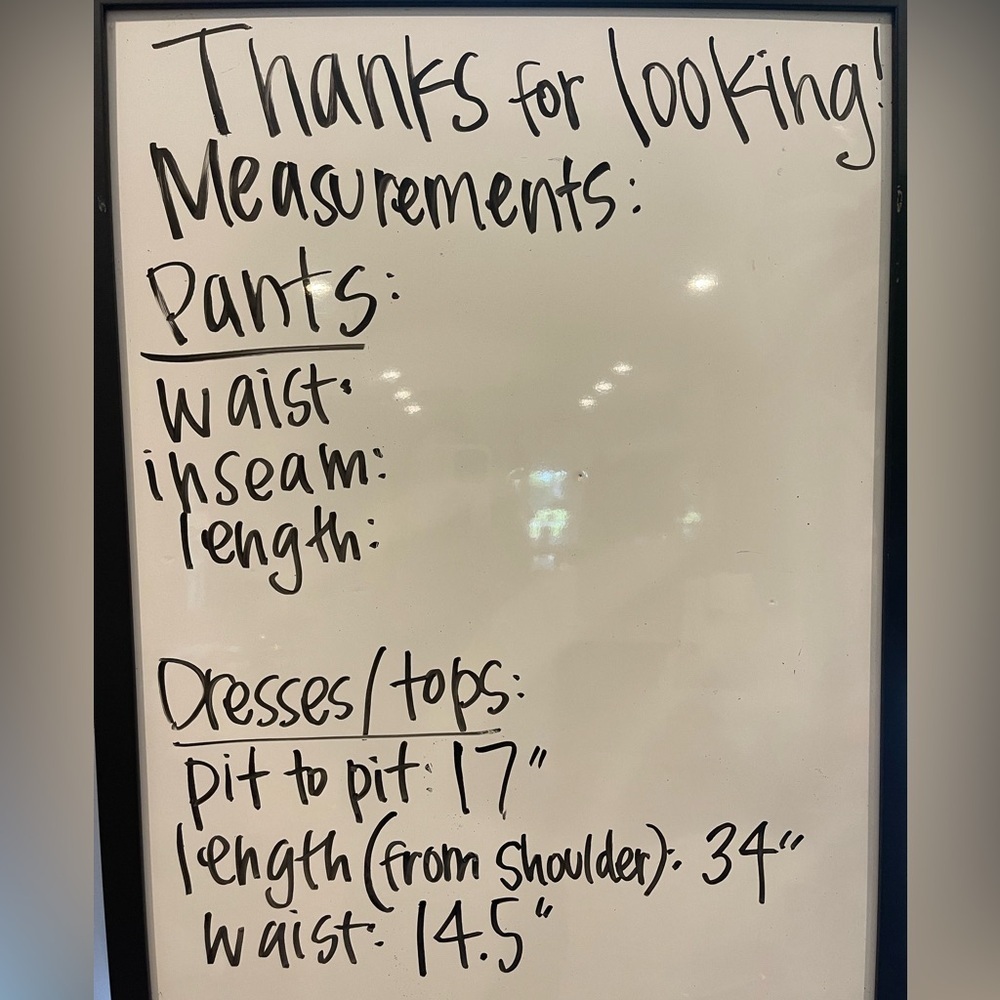 Thanks for looking!
Measurements:
Pants:
waist:
inseam:
length:
Dresses/tops:
pit to pit: 17"
length (from shoulder): 34"
waist: 14.5"